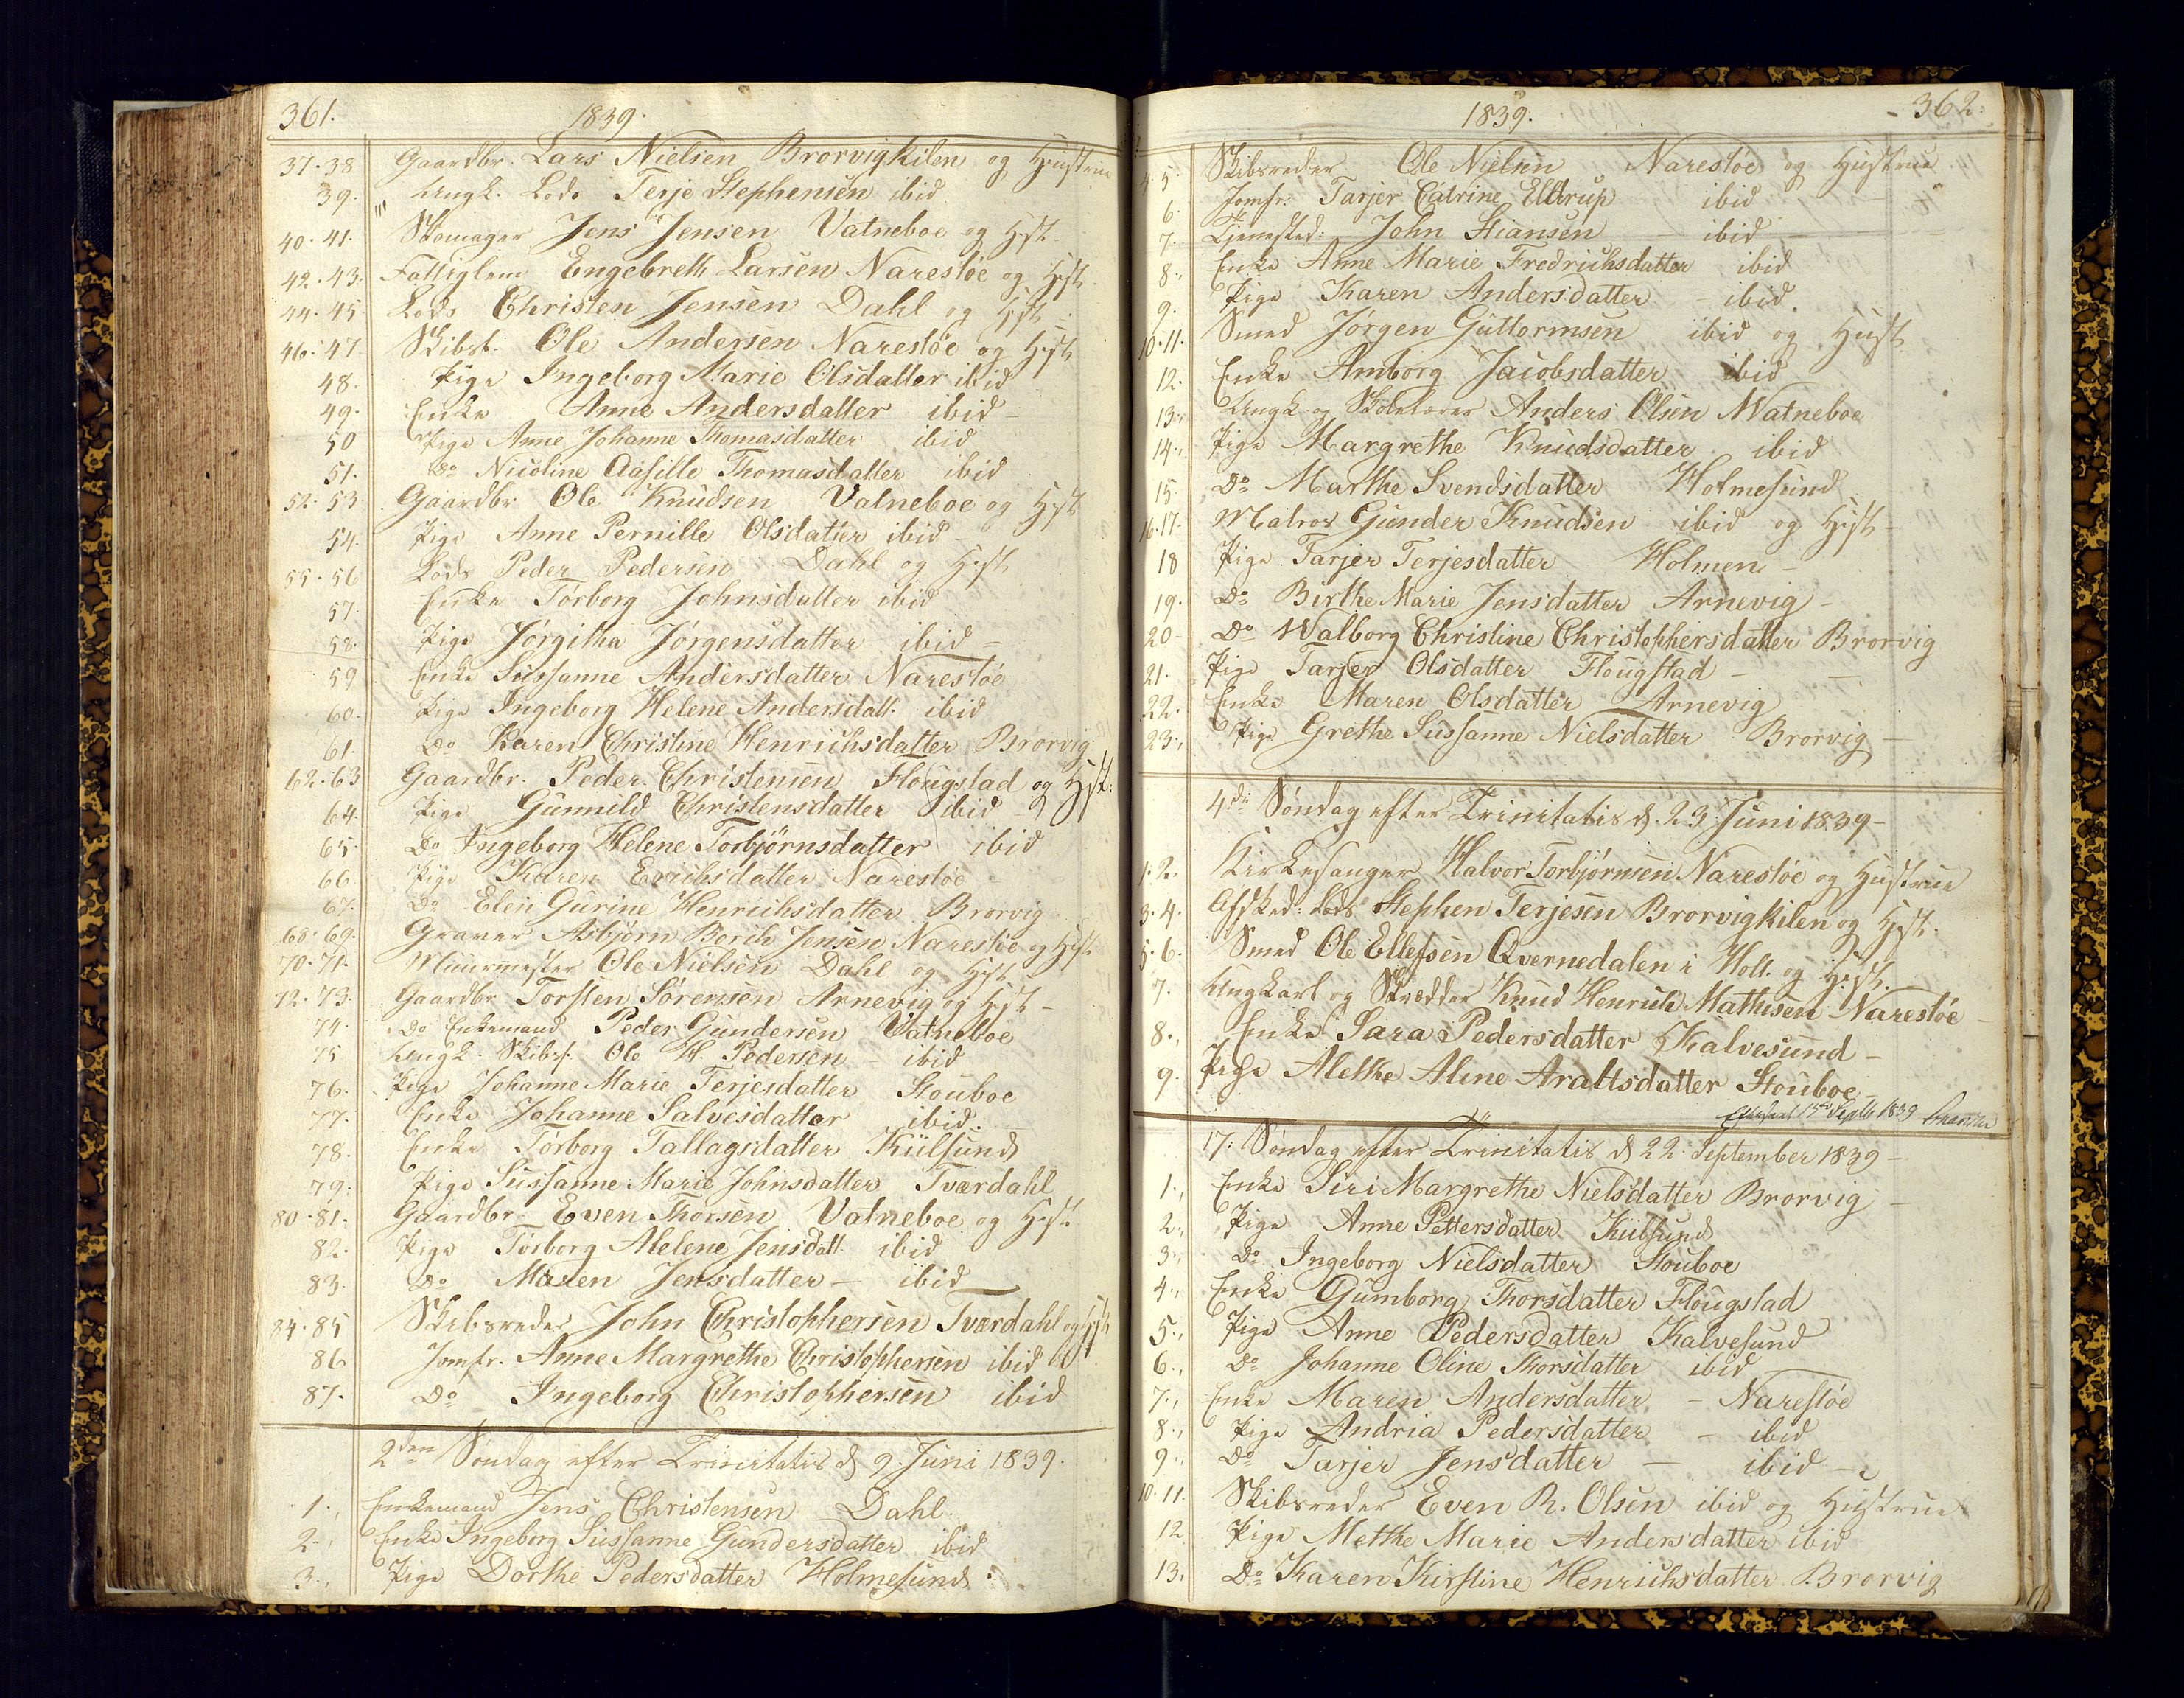 361.
1839.
37.38 Gaardbr. Lars Nielsen Brorvigkilen og Hustrue
39. Ungk. Lods Terje Stephensen ibid
40.41. Skomager Jens Jensen Vatneboe og Hust
42.43. Fattiglem Engebreth Larsen Narestöe og Hust
44.45 Lods Christen Jensen Dahl og Hust
46.47 Skibst. Ole Andersen Narestöe og Hust
48. Pige Ingeborg Marie Olsdatter ibid
49. Enke Anne Andersdatter ibid
50 Pige Anne Johanne Thomasdatter ibid
51. Do Nicoline Thomasdatter ibid
52.53 Gaardbr Ole Knudsen Vatneboe og Hust
54. Pige Anne Pernille Olsdatter ibid
55.56 Lods Peder Pedersen Dahl og Hust
57. Enke Torborg Johnsdatter ibid
58. Pige Jörgitha Jörgensdatter ibid
59 Enke Sussanne Andersdatter Narestöe
60. Pige Ingeborg Helene Andersdatt. ibid
61. Do Karen Christine Henrichsdatter Brorvig
62.63 Gaardbr. Peder Christensen Flougstad og Hust:
64. Pige Gunnild Christensdatter ibid
65. Do Ingeborg Helene Torbjörnsdatter ibid
66. Pige Karen Erichsdatter Narestöe
67. Do Elen Gurine Henrichsdatter Brorvig
68.69. Graver Asbjörn Berth Jensen Narestöe og Hust
70.71. Muurmester Ole Nielsen Dahl og Hust
72.73. Gaardbr Torsten Sörensen Arnevig og Hust
74. Do Enkemand Peder Gundersen Vatneboe
75 Ungk. Skibsf. Ole H. Pedersen ibid
76. Pige Johanne Marie Terjesdatter Stouboe
77. Enke Johanne Salvesdatter ibid.
78. Enke Torborg Tallagsdatter Kiilsund
79. Pige Sussanne Marie Johnsdatter Tværdahl
80.81. Gaardbr. Even Thorsen Vatneboe og Hust
82. Pige Torborg Alelene Jensdatt. ibid
83. Do Maren Jensdatter ibid
84.85 Skibsreder John Christophersen Tværdahl og Hust
86 Jomfr. Anne Margrethe Christophersen ibid
87. Do Ingeborg Christophersen ibid
2den Söndag efter Trinitatis d 9. Juni 1839.
1., Enkemand Jens Christensen Dahl
2., Enke Ingeborg Sussanne Gundersdatter ibid
3., Pige Dorthe Pedersdatter Holmesund
1839.
362.
4.5. Skibsreder Ole Nielsen Narestöe og Hustrue
6. Jomfr. Tarjer Catrine Elltrup ibid
7. Tjenestek: John Stiansen ibid
8., Enke Anne Marie Fredrichsdatter ibid
9. Pige Karen Andersdatter ibid.
10.11. Smed Jörgen Guttormsen ibid og Hust
12. Enke Amborg Jacobsdatter ibid
13., Ungk og Skolelærer Anders Olsen Watneboe
14., Pige Margrethe Knudsdatter ibid
15 Do Marthe Svendsdatter Holmesund
16.17. Matros Gunder Knudsen ibid og Hust
18 Pige Tarjer Terjesdatter Holmen
19. Do Birthe Marie Jensdatter Arnevig
20 Do Walborg Christine Christophersdatter Brorvig
21. Pige Tarjer Olsdatter Flougstad
22. Enke Maren Olsdatter Arnevig
23., Pige Grethe Sussanne Nielsdatter Brorvig
4de Söndag efter Trinitatis d 23 Juni 1839
1.2. Kirkesanger Halvor Torbjörnsen Narestöe og Hustrue
3.4. Afsked: Lods Stephen Terjesen Brorvigkilen og Hust.
5.6. Smed Ole Ellefsen Qvernedalen i Holt. og Hust.
7. Ungkarl og Skrædder Knud Henrich Mathisen Narestöe
8., Enke Sara Pedersdatter Kalvesund
9. Pige Alethe Aline Araltsdatter Stouboe
15de Septb 1839
17: Söndag efter Trinitatis d 22 September 1839
1., Enke Siri Margrethe Nielsdatter Brorvig
2., Pige Anne Pettersdatter Kiilsund
3., Do Ingeborg Nielsdatter Stouboe
4., Enke Gumborg Thorsdatter Flougstad
5., Pige Anne Pedersdatter Kalvesund
6., Do Johanne Oline Thorsdatter ibid
7., Enke Maren Andersdatter - Narestöe
8., Pige Andria Pedersdatter - ibid
9., Do Tarjer Jensdatter - ibid
10.11. Skibsreder Even R. Olsen ibid og Hustrue
12 Pige Methe Marie Andersdatter ibid
13. Do Karen Kirstine Henrichsdatter Brorvig